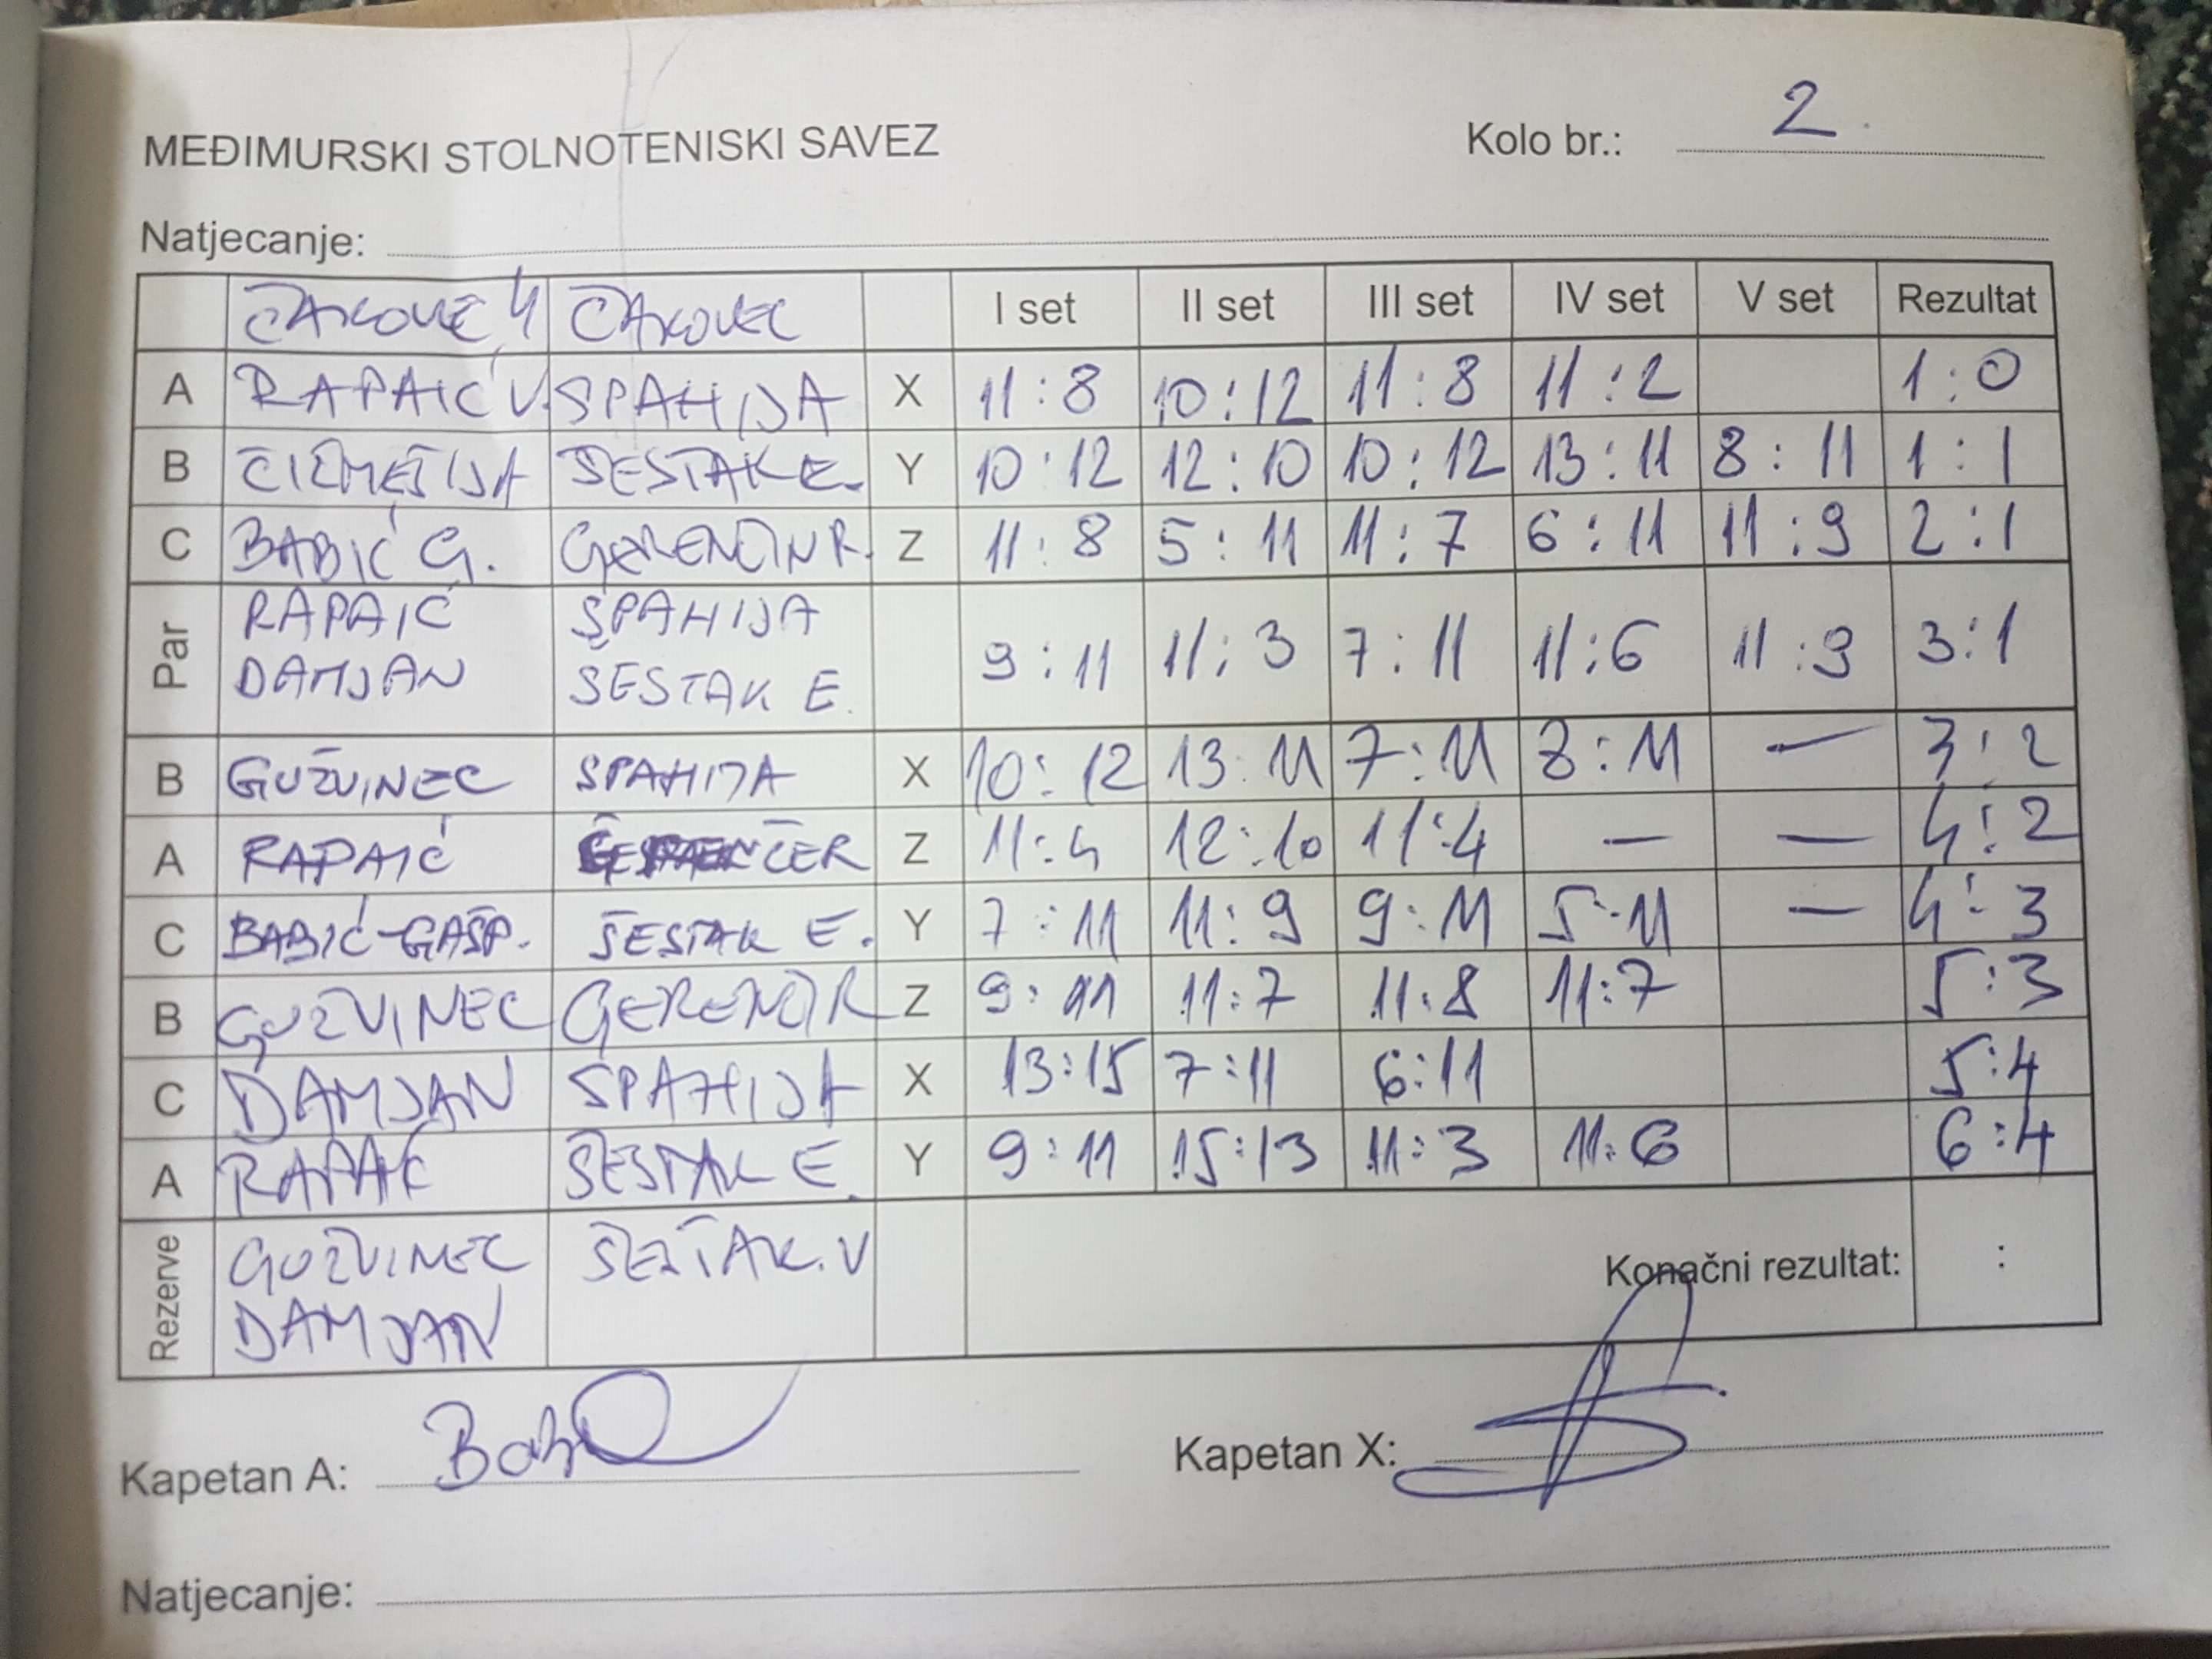 MEĐIMURSKI STOLNOTENISKI SAVEZ Kolo br.: 2.
Natjecanje:
ČAKOVEC 4 ČAKOVEC I set II set III set IV set V set Rezultat
A RAPAIĆ V. SPAHIJA X 11:8 10:12 11:8 11:2 1:0
B ČIZMEŠIJA ŠESTAK E. Y 10:12 12:10 10:12 13:11 8:11 1:1
C BABIĆ G. GERENČIR R. Z 11:8 5:11 11:7 6:11 11:9 2:1
Par RAPAIĆ DAMJAN SPAHIJA ŠESTAK E. 9:11 11:3 7:11 11:6 11:9 3:1
B GUŽVINEC SPAHIJA X 10:12 13:11 7:11 8:11 — 3:2
A RAPAIĆ Z 11:4 12:10 11:4 — — 4:2
C BABIĆ-GAŠP. ŠESTAK E. Y 7:11 11:9 9:11 5:11 — 4:3
B GUŽVINEC GERENČIR Z 9:11 11:7 11:8 11:7 5:3
C DAMJAN SPAHIJA X 13:15 7:11 6:11 5:4
A RAPAIĆ ŠESTAK E. Y 9:11 15:13 11:3 11:6 6:4
Rezerve GUŽVINEC DAMJAN ŠESTAK. V Konačni rezultat: :
Kapetan A: Kapetan X:
Natjecanje: